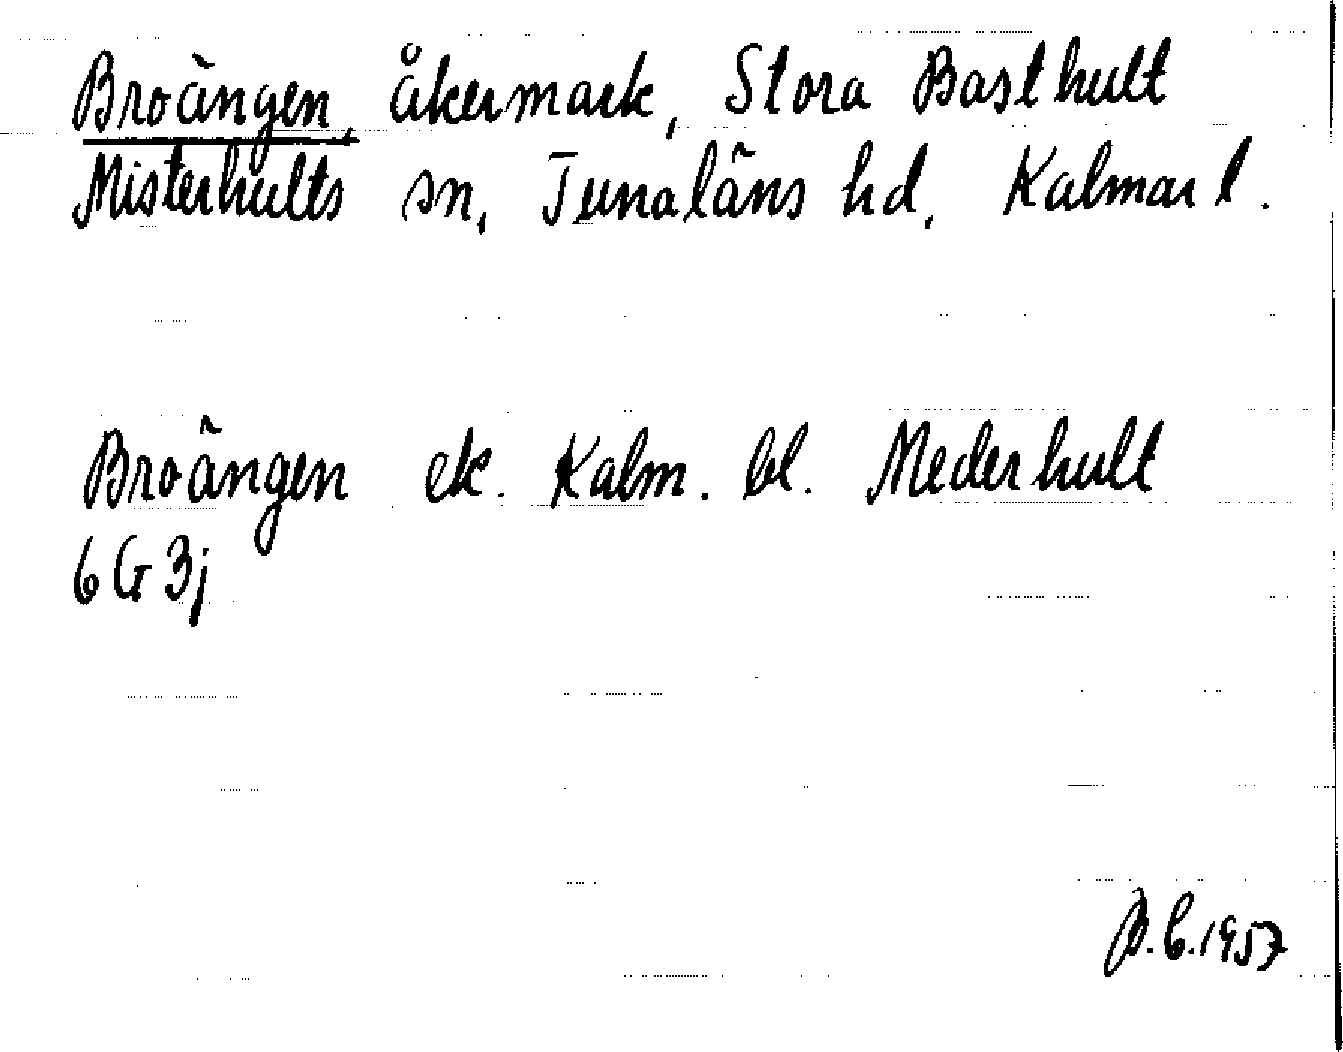 Broängen, åkermark, Stora Basthult
Misterhults sn, Tunaläns hd, Kalmar l.
Broängen ek. Kalm. bl. Mederhult
6G3j
B.C.1957